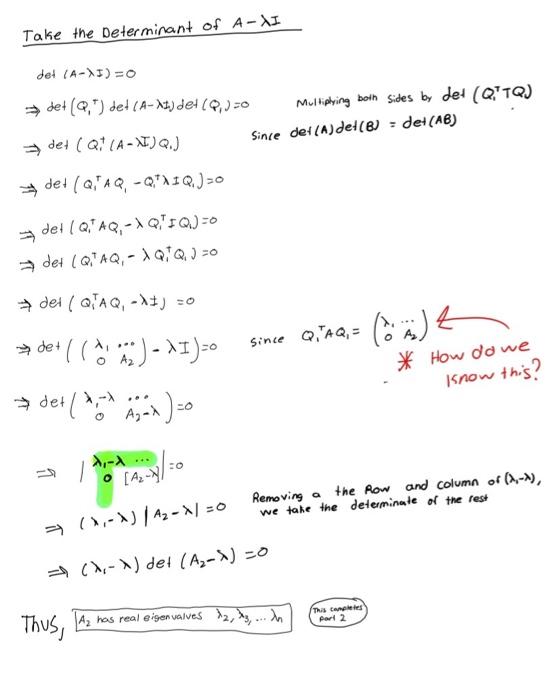 Take the Determinant of A-λI
det (A-λI)=0
⇒ det (Q₁ᵀ) det (A-λI) det (Q₁)=0 Multiplying both sides by det (Q₁ᵀTQ₁)
⇒ det (Q₁ᵀ (A-λI)Q₁) Since det(A)det(B) = det(AB)
⇒ det (Q₁ᵀAQ₁ -Q₁ᵀλIQ₁)=0
⇒ det (Q₁ᵀAQ₁ -λQ₁ᵀIQ₁)=0
⇒ det (Q₁ᵀAQ₁ - λQ₁ᵀQ₁)=0
⇒ det (Q₁ᵀAQ₁ -λI) =0
⇒ det ( ( λ₁ ...
0 A₂ ) - λI)=0 since Q₁ᵀAQ₁ = ( λ₁ ...
0 A₂ )
* How do we
know this?
⇒ det ( λ₁-λ ...
0 A₂-λ ) =0
⇒ | λ₁-λ ...
0 [A₂-λ] | =0
⇒ (λ₁-λ) |A₂-λ| =0 Removing a the Row and column of (λ₁-λ),
we take the determinate of the rest
⇒ (λ₁-λ) det (A₂-λ) =0
Thus, A₂ has real eigenvalues λ₂, λ₃, ... λn
This completes
part 2